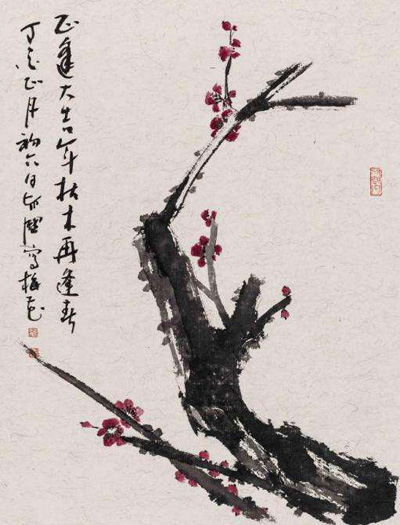 正逢大吉年枯木再逢春
丁亥正月初六日寫梅花